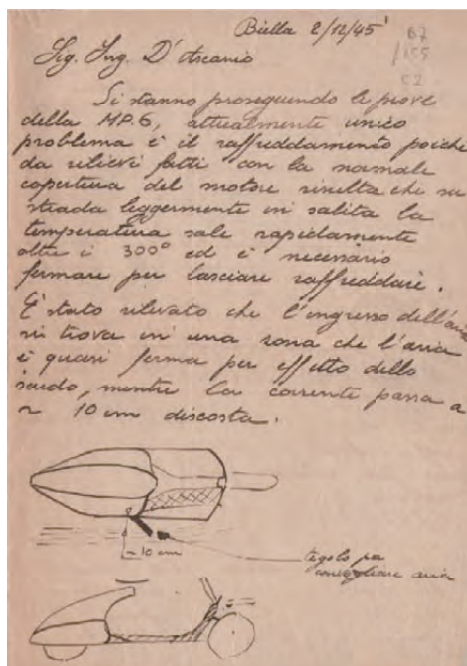 Biella 2/12/45
67
/155
52
Sig. Ing. D'Ascanio
Si stanno proseguendo le prove
della MP.6, attualmente unico
problema è il raffreddamento poiché
da rilievi fatti con la normale
copertura del motore risulta che su
strada leggermente in salita la
temperatura sale rapidamente
oltre i 300° ed è necessario
fermare per lasciare raffreddare.
E' stato rilevato che l'ingresso dell'aria
si trova in una zona che l'aria
è quasi ferma per effetto dello
scudo, mentre la corrente passa a
~ 10 cm discosta.
~ 10 cm
tegolo per
convogliare aria